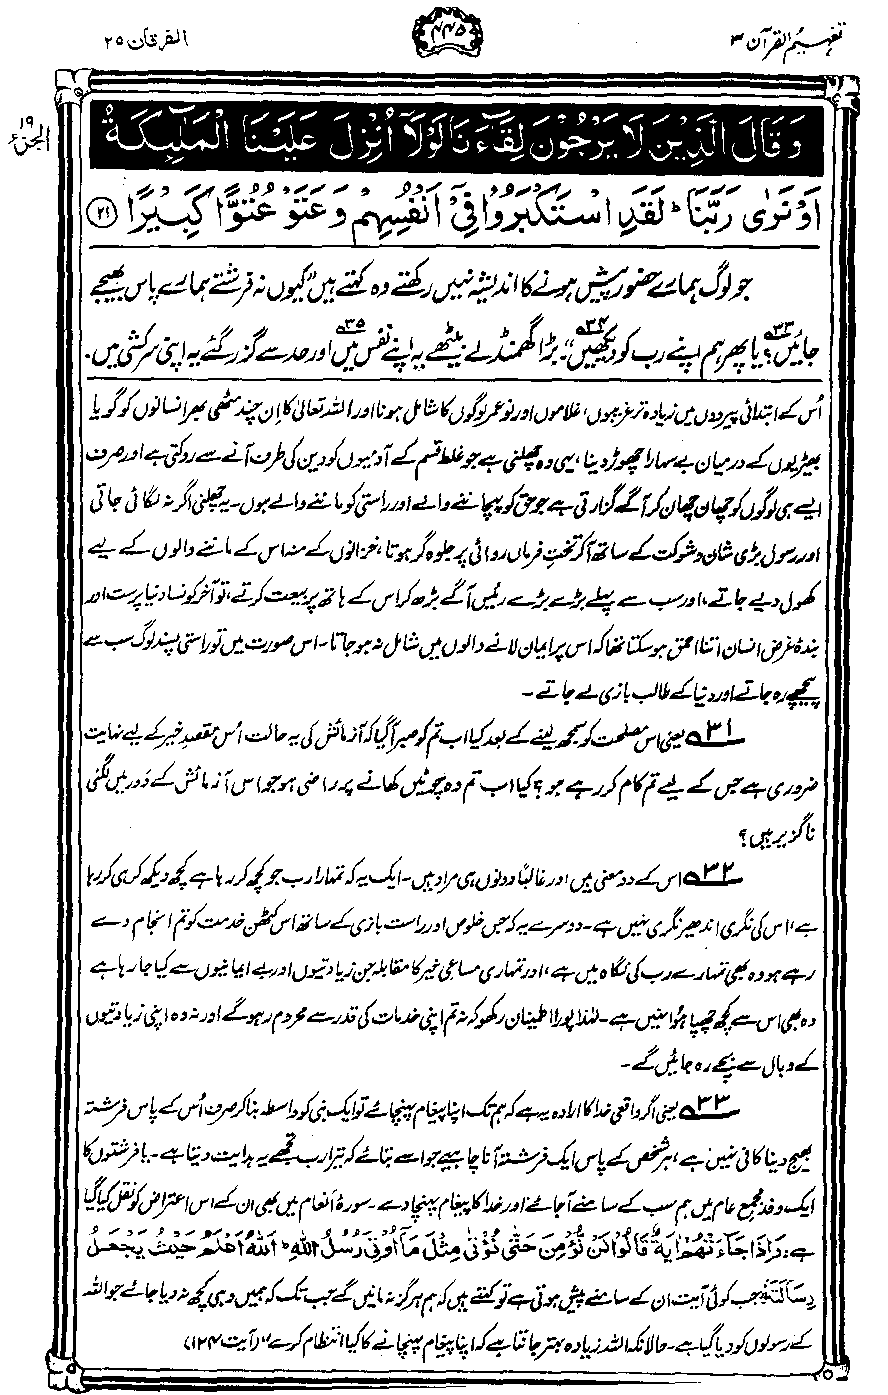 تفہیم القرآن ۳
۴۴۵
الفرقان ۲۵
الجزء ۱۹
وَقَالَ الَّذِيْنَ لَا يَرْجُوْنَ لِقَآءَنَا لَوْلَآ اُنْزِلَ عَلَيْنَا الْمَلٰٓئِكَةُ
اَوْ نَرٰى رَبَّنَا ؕ لَقَدِ اسْتَكْبَرُوْا فِيْٓ اَنْفُسِهِمْ وَعَتَوْ عُتُوًّا كَبِيْرًا ﴿۲۱﴾
جو لوگ ہمارے حضور پیش ہونے کا اندیشہ نہیں رکھتے وہ کہتے ہیں ”کیوں نہ فرشتے ہمارے پاس بھیجے
جائیں؟۳۳ یا پھر ہم اپنے رب کو دیکھیں۳۴“۔ بڑا گھمنڈ لے بیٹھے یہ اپنے نفس میں۳۵ اور حد سے گزر گئے یہ اپنی سرکشی میں۔
اُس کے ابتدائی پیرووں میں زیادہ تر غریبوں، غلاموں اور نوعمر لوگوں کا شامل ہونا اور اللہ تعالیٰ کا اِن چند مٹھی بھر انسانوں کو گویا
بھیڑیوں کے درمیان بے سہارا چھوڑ دینا، یہی وہ چھلنی ہے جو غلط قسم کے آدمیوں کو دین کی طرف آنے سے روکتی ہے اور صرف
ایسے ہی لوگوں کو چھان چھان کر آگے گزارتی ہے جو حق کو پہچاننے والے اور راستی کو ماننے والے ہوں۔ یہ چھلنی اگر نہ لگائی جاتی
اور رسول بڑی شان و شوکت کے ساتھ آ کر تختِ فرماں روائی پر جلوہ گر ہوتا، خزانوں کے منہ اس کے ماننے والوں کے لیے
کھول دیے جاتے، اور سب سے پہلے بڑے بڑے رئیس آگے بڑھ کر اس کے ہاتھ پر بیعت کرتے، تو آخر کونسا دنیا پرست اور
بندۂ غرض انسان اتنا احمق ہو سکتا تھا کہ اس پر ایمان لانے والوں میں شامل نہ ہو جاتا۔ اس صورت میں تو راستی پسند لوگ سب سے
پیچھے رہ جاتے اور دنیا کے طالب بازی لے جاتے۔
۳۱ یعنی اس مصلحت کو سمجھ لینے کے بعد کیا اب تم کو صبر آگیا کہ آزمائش کی یہ حالت اُس مقصدِ خیر کے لیے نہایت
ضروری ہے جس کے لیے تم کام کر رہے ہو؟ کیا اب تم وہ چوٹیں کھانے پر راضی ہو جو اس آزمائش کے دَور میں لگنی
ناگزیر ہیں؟
۳۲ اس کے دو معنی ہیں اور غالباً دونوں ہی مراد ہیں۔ ایک یہ کہ تمہارا رب جو کچھ کر رہا ہے کچھ دیکھ کر ہی کر رہا
ہے، اس کی نگری اندھیر نگری نہیں ہے۔ دوسرے یہ کہ جس خلوص اور راست بازی کے ساتھ اس کٹھن خدمت کو تم انجام دے
رہے ہو وہ بھی تمہارے رب کی نگاہ میں ہے، اور تمہاری مساعیِ خیر کا مقابلہ جن زیادتیوں اور بے ایمانیوں سے کیا جا رہا ہے
وہ بھی اس سے کچھ چھپا ہوا نہیں ہے۔ لہٰذا پورا اطمینان رکھو کہ نہ تم اپنی خدمات کی قدر سے محروم رہو گے اور نہ وہ اپنی زیادتیوں
کے وبال سے بچے رہ جائیں گے۔
۳۳ یعنی اگر واقعی خدا کا ارادہ یہ ہے کہ ہم تک اپنا پیغام پہنچائے تو ایک نبی کو واسطہ بنا کر صرف اُس کے پاس فرشتہ
بھیج دینا کافی نہیں ہے، ہر شخص کے پاس ایک فرشتہ آنا چاہیے جو اسے بتائے کہ تیرا رب تجھے یہ ہدایت دیتا ہے۔ یا فرشتوں کا
ایک وفد مجمع عام میں ہم سب کے سامنے آجائے اور خدا کا پیغام پہنچا دے۔ سورۂ اَنعام میں بھی ان کے اس اعتراض کو نقل کیا گیا
ہے: وَاِذَا جَآءَتْهُمْ اٰيَةٌ قَالُوْا لَنْ نُّؤْمِنَ حَتّٰى نُؤْتٰى مِثْلَ مَآ اُوْتِيَ رُسُلُ اللّٰهِ ؕ اَللّٰهُ اَعْلَمُ حَيْثُ يَجْعَلُ
رِسَالَتَهٗ۔ ”جب کوئی آیت ان کے سامنے پیش ہوتی ہے تو کہتے ہیں کہ ہم ہرگز نہ مانیں گے جب تک کہ ہمیں وہی کچھ نہ دیا جائے جو اللہ
کے رسولوں کو دیا گیا ہے۔ حالانکہ اللہ زیادہ بہتر جانتا ہے کہ اپنا پیغام پہنچانے کا کیا انتظام کرے“ (آیت ۱۲۴)